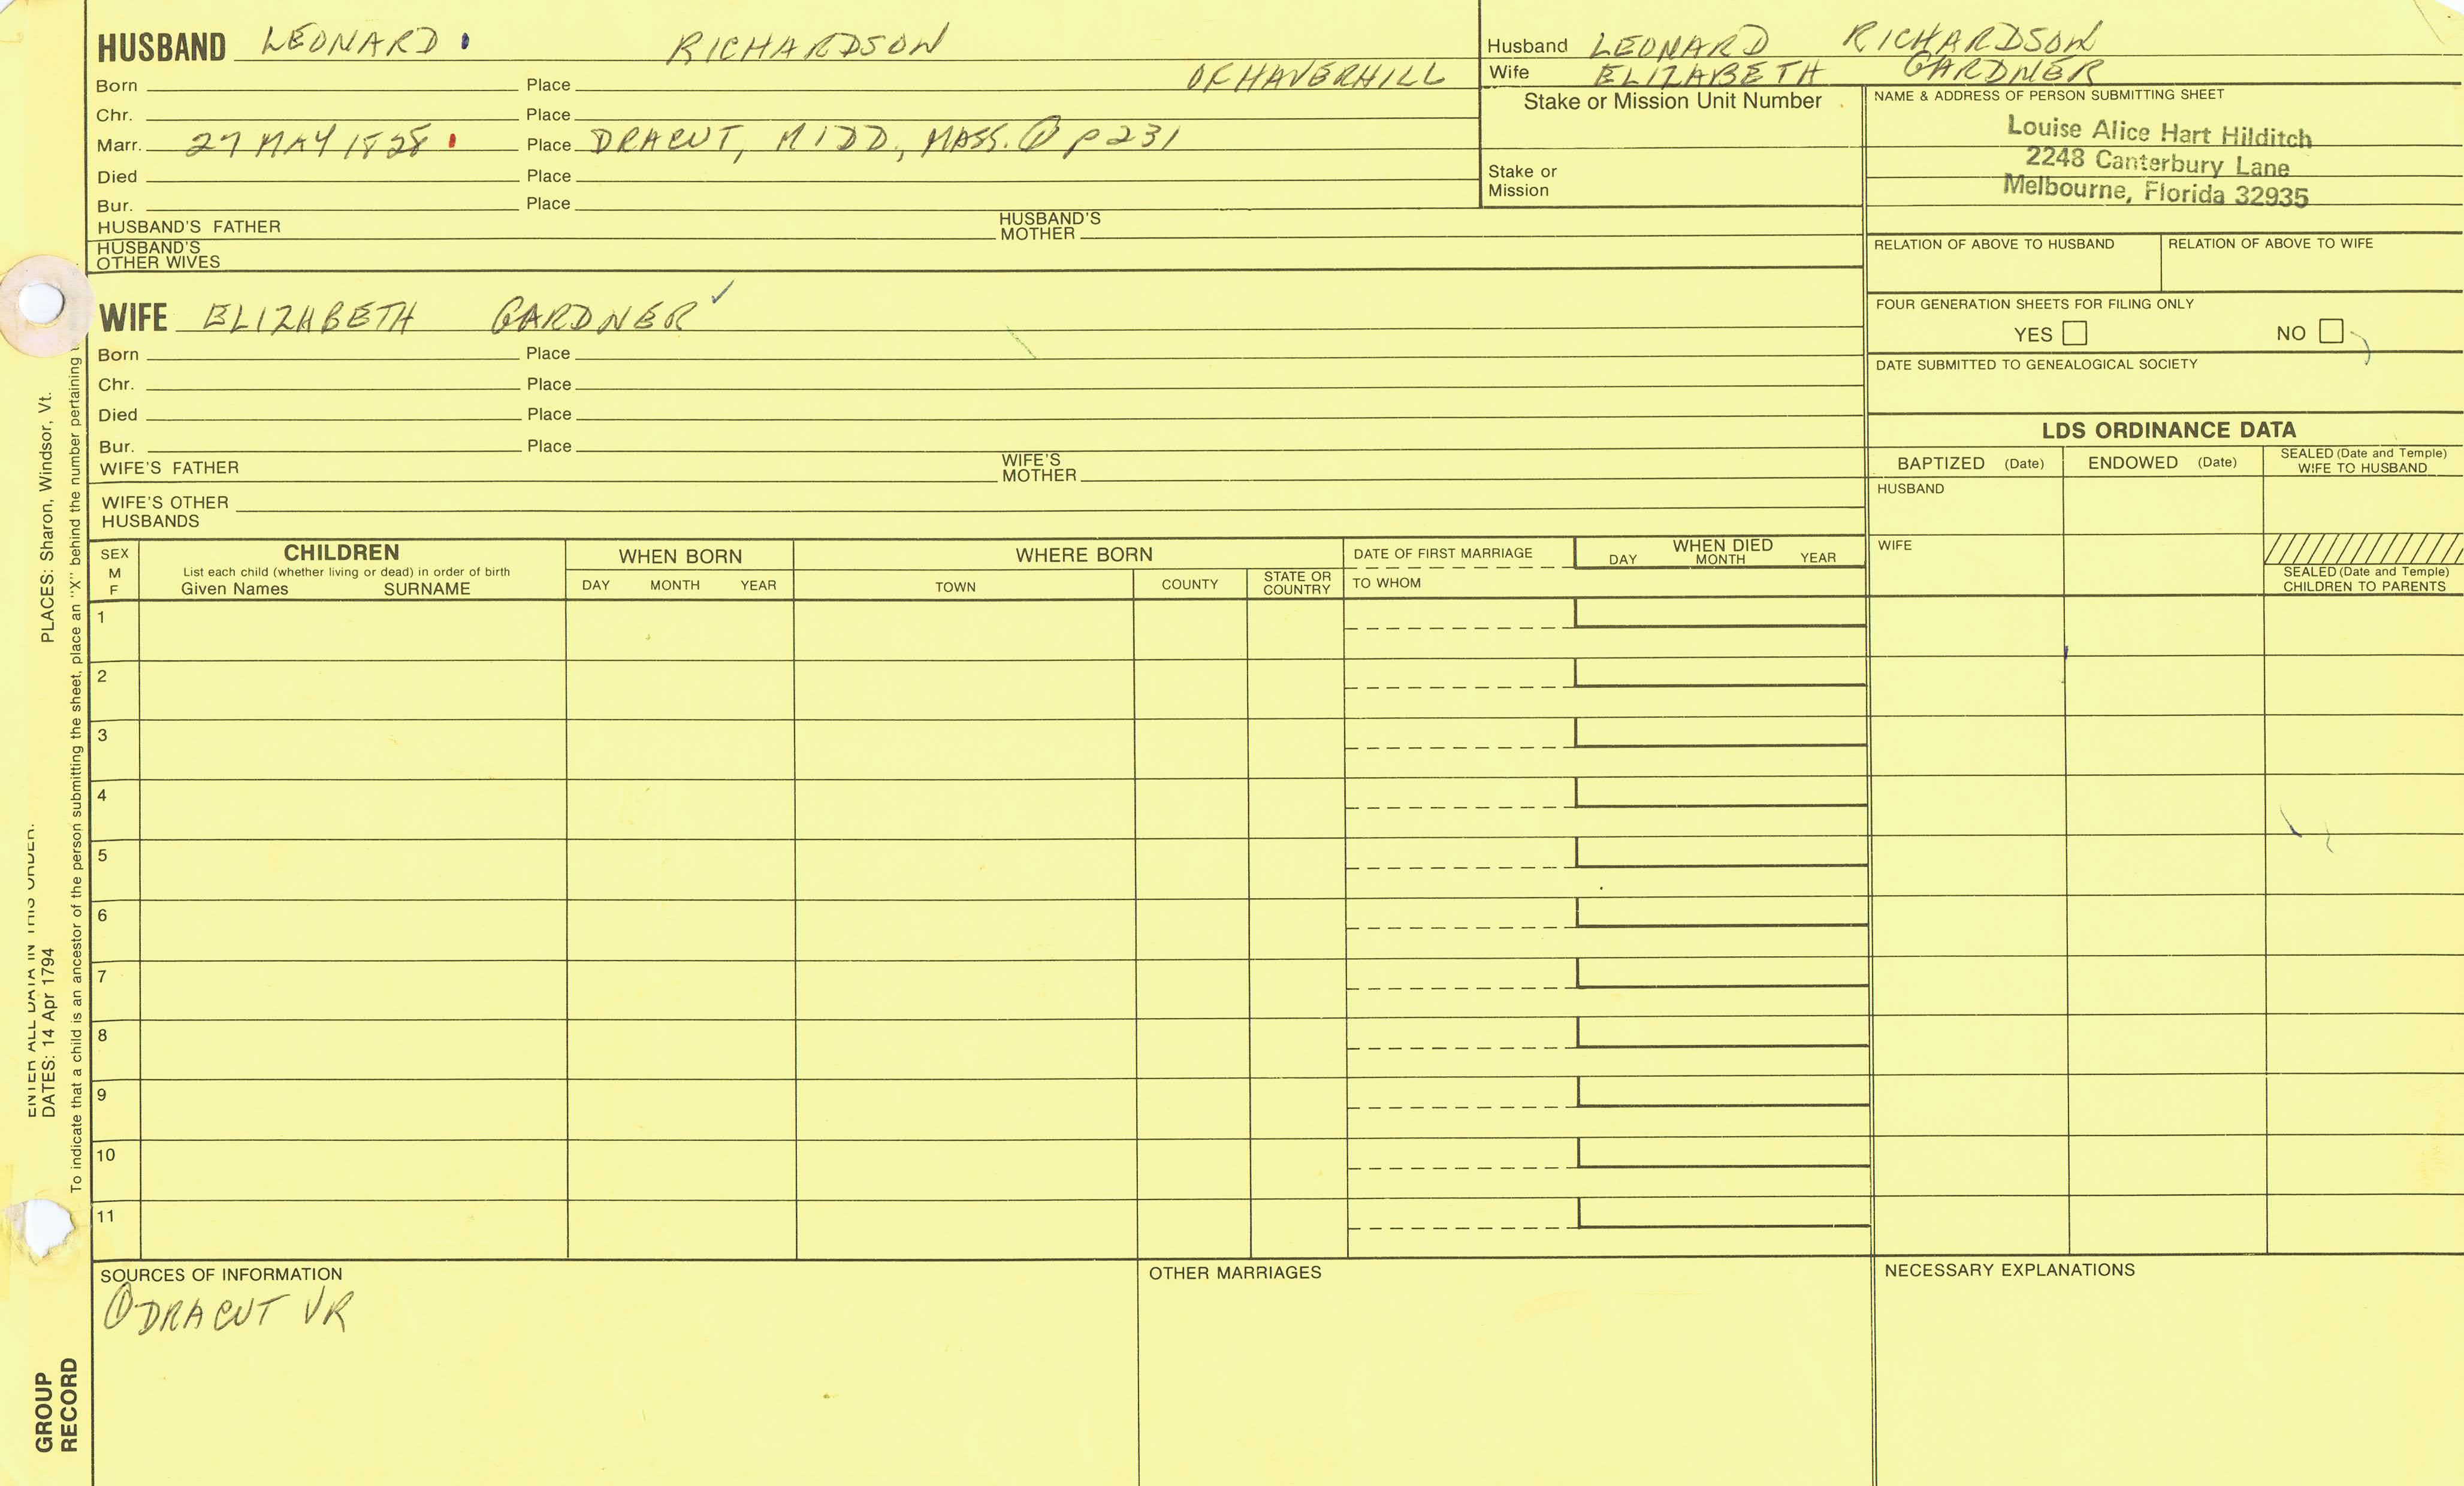 HUSBAND LEONARD RICHARDSON
OF HAVERHILL
Born Place
Chr. Place
Marr. 27 MAY 1828 Place DRACUT, MIDD, MASS. ① p 231
Died Place
Bur. Place
HUSBAND'S FATHER HUSBAND'S MOTHER
HUSBAND'S OTHER WIVES
Husband LEONARD RICHARDSON
Wife ELIZABETH GARDNER
Stake or Mission Unit Number
Stake or Mission
NAME & ADDRESS OF PERSON SUBMITTING SHEET
Louise Alice Hart Hilditch
2248 Canterbury Lane
Melbourne, Florida 32935
RELATION OF ABOVE TO HUSBAND RELATION OF ABOVE TO WIFE
FOUR GENERATION SHEETS FOR FILING ONLY
YES NO
DATE SUBMITTED TO GENEALOGICAL SOCIETY
WIFE ELIZABETH GARDNER ✓
Born Place
Chr. Place
Died Place
Bur. Place
WIFE'S FATHER WIFE'S MOTHER
WIFE'S OTHER HUSBANDS
LDS ORDINANCE DATA
BAPTIZED (Date) ENDOWED (Date) SEALED (Date and Temple) WIFE TO HUSBAND
HUSBAND
WIFE
SEALED (Date and Temple) CHILDREN TO PARENTS
SEX M F
CHILDREN
List each child (whether living or dead) in order of birth
Given Names SURNAME
WHEN BORN
DAY MONTH YEAR
WHERE BORN
TOWN COUNTY STATE OR COUNTRY
DATE OF FIRST MARRIAGE
TO WHOM
WHEN DIED
DAY MONTH YEAR
1
2
3
4
5
6
7
8
9
10
11
SOURCES OF INFORMATION
① DRACUT VR
OTHER MARRIAGES
NECESSARY EXPLANATIONS
ENTER ALL DATA IN THIS ORDER:
DATES: 14 Apr 1794 PLACES: Sharon, Windsor, Vt.
To indicate that a child is an ancestor of the person submitting the sheet, place an "X" behind the number pertaining
GROUP
RECORD